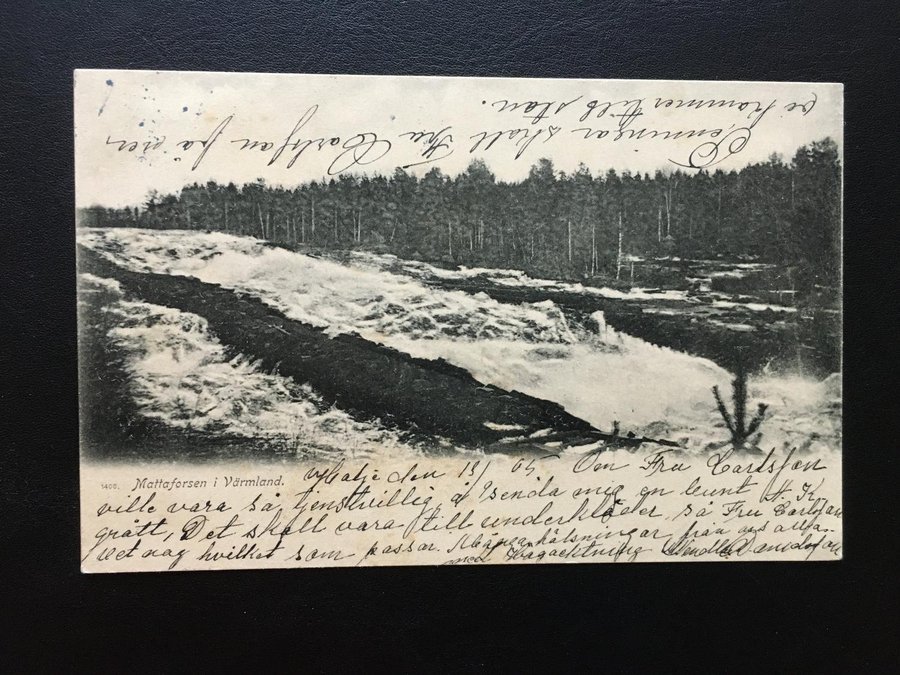 1400. Mattaforsen i Värmland.
den 13/1 05 Om Fru Carlsson
ville vara så tjenstvillig å sända mig en bunt H. K.
grått, Det skall vara till underkläder, så Fru Carlsson
vet nog hvilket som passar. Många hälsningar från oss alla.
med Högaktning
Penningar skall Fru Carlsson få när
vi kommer till stan.